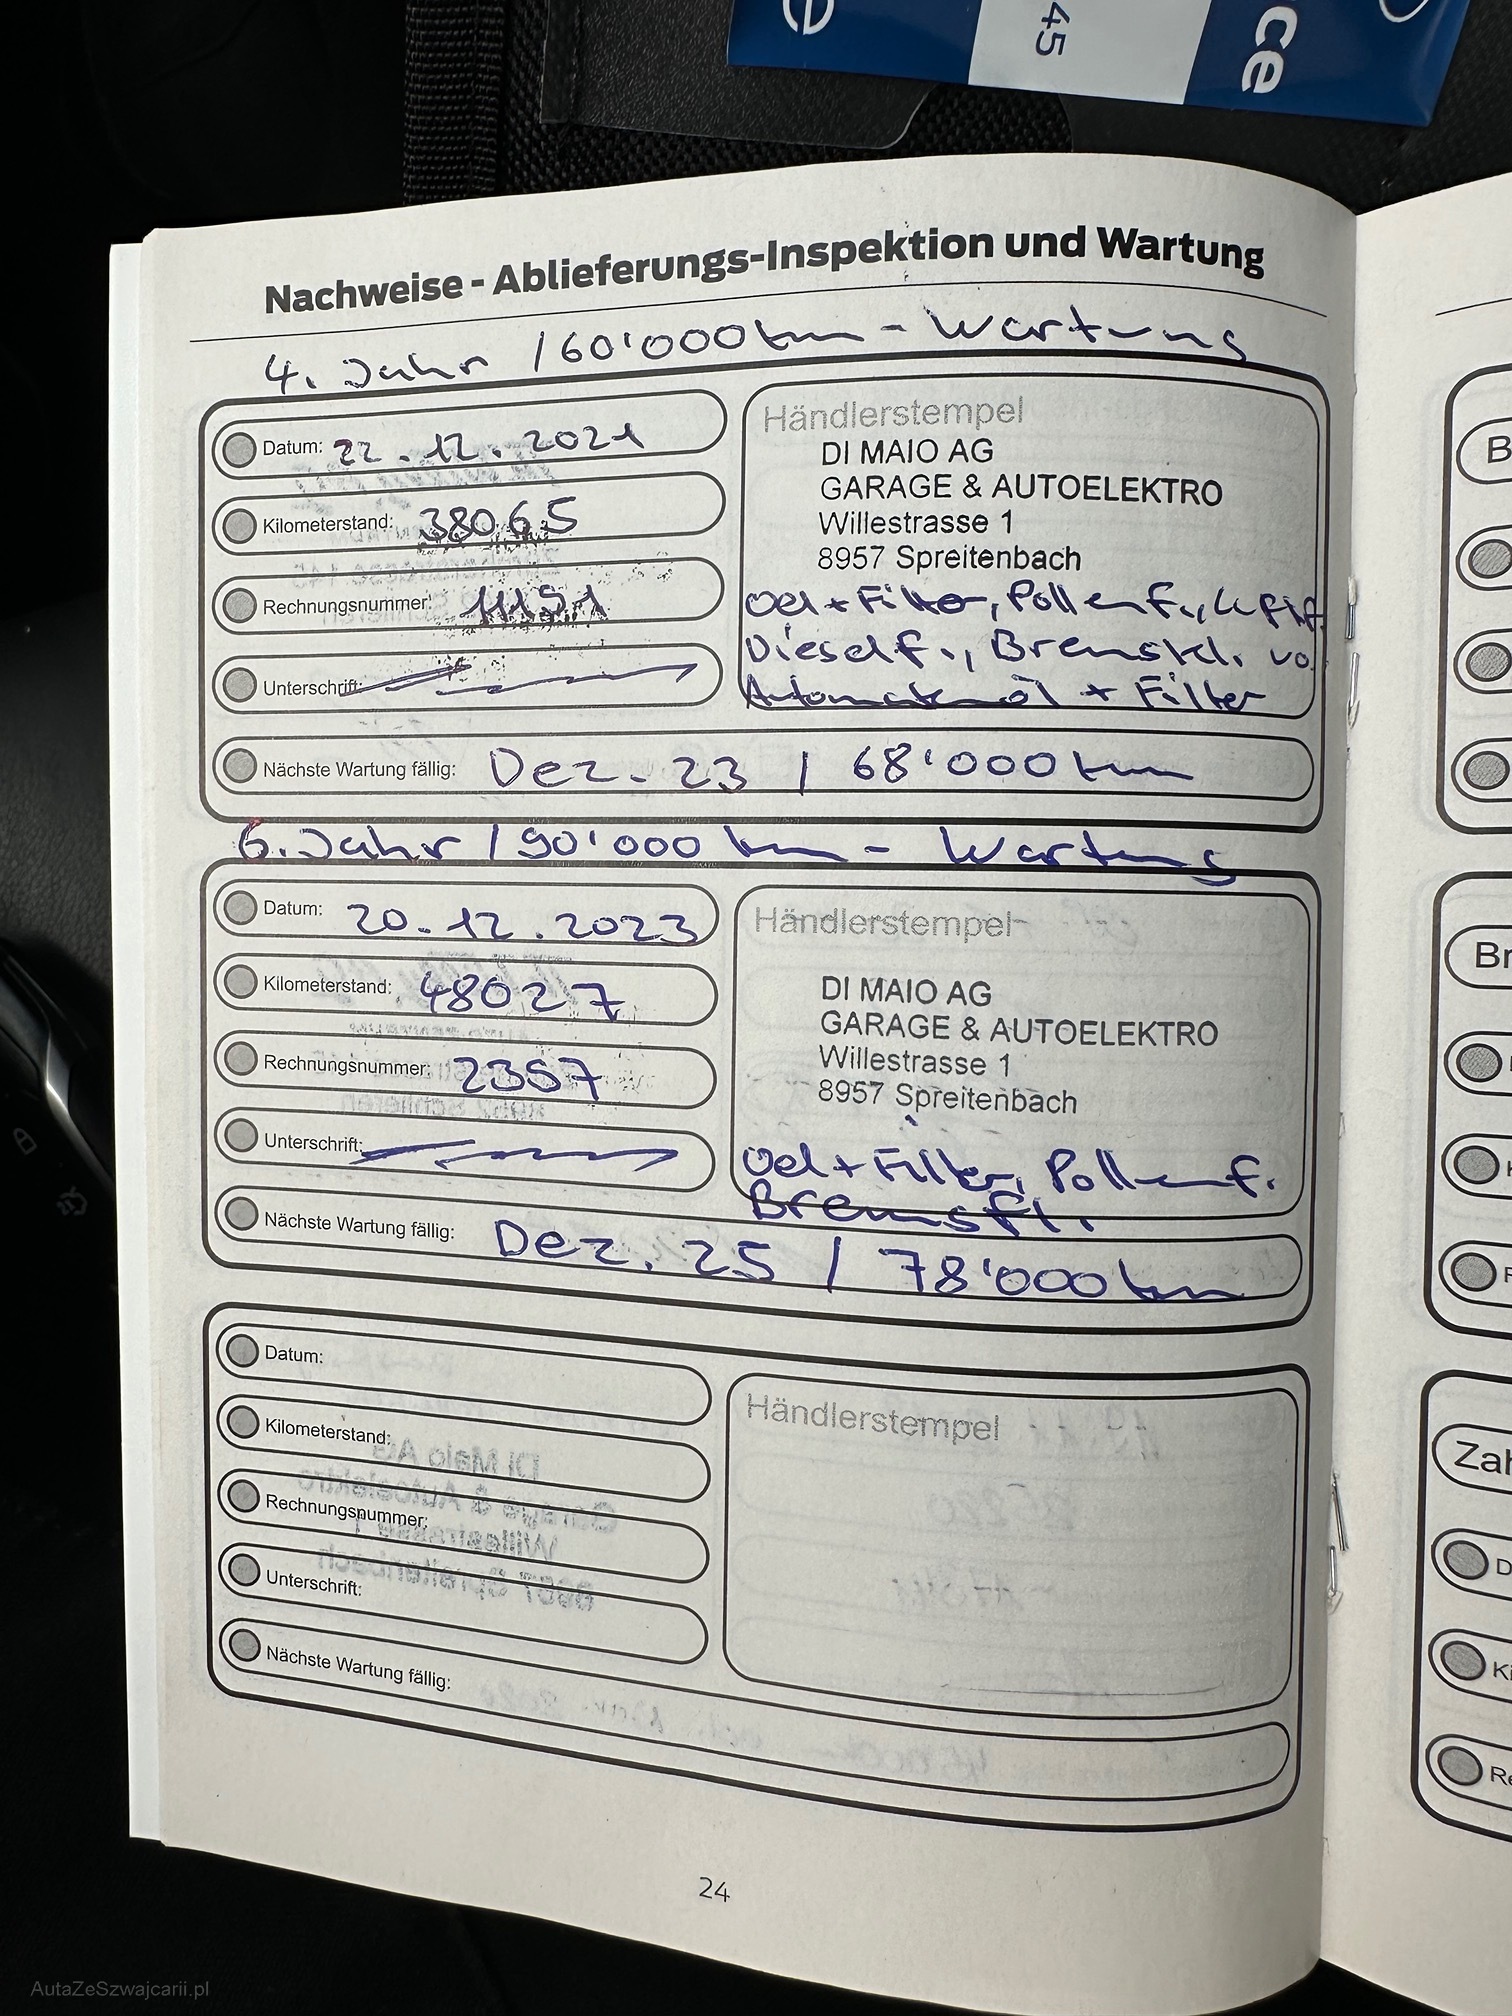 ce
45
e
Nachweise - Ablieferungs-Inspektion und Wartung
4. Jahr / 60'000 km - Wartung
Datum: 22.12.2021
Kilometerstand: 38065
Rechnungsnummer: 11151
Unterschrift:
Händlerstempel
DI MAIO AG
GARAGE & AUTOELEKTRO
Willestrasse 1
8957 Spreitenbach
Oel + Filter, Pollenf., Luftf.
Dieself., Bremskl. vo.
Automatenöl + Filter
Nächste Wartung fällig: Dez. 23 / 68'000 km
6. Jahr / 90'000 km - Wartung
Datum: 20.12.2023
Kilometerstand: 48027
Rechnungsnummer: 2357
Unterschrift:
Händlerstempel
DI MAIO AG
GARAGE & AUTOELEKTRO
Willestrasse 1
8957 Spreitenbach
Oel + Filter, Pollenf.
Bremsfl.
Nächste Wartung fällig: Dez. 25 / 78'000 km
Datum:
Kilometerstand:
Rechnungsnummer:
Unterschrift:
Nächste Wartung fällig:
Händlerstempel
24
B
Br
Zah
D
Ki
Re
AutaZeSzwajcarii.pl